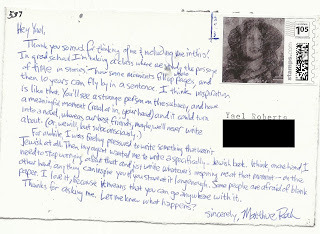 3/7
Hey Yael,
Thank you so much for thinking of me & including me in this!
In grad school I'm taking a class where we study the passage
of time in stories. How some moments fill up pages, and
then 10 years can fly by in a sentence. I think inspiration
is like that. You'll see a strange person on the subway, and have
a meaningful moment (real or in your head) and it could turn
into a novel, whereas, our best friends, maybe, we'll never write
about. (or, we will, but subconsciously.)
For a while I was feeling pressured to write something that wasn't
Jewish at all. Then, my agent wanted me to write a specifically Jewish book. I think once I
need to stop worrying about that and just write whatever's inspiring me at that moment – on the
other hand, anything can inspire you if you stare at it long enough. Some people are afraid of blank
paper. I love it, because it means that you can go anywhere with it.
Thanks for asking me. Let me know what happens?
sincerely, Matthue Roth
stamps.com
US POSTAGE
1.05
Yael Roberts